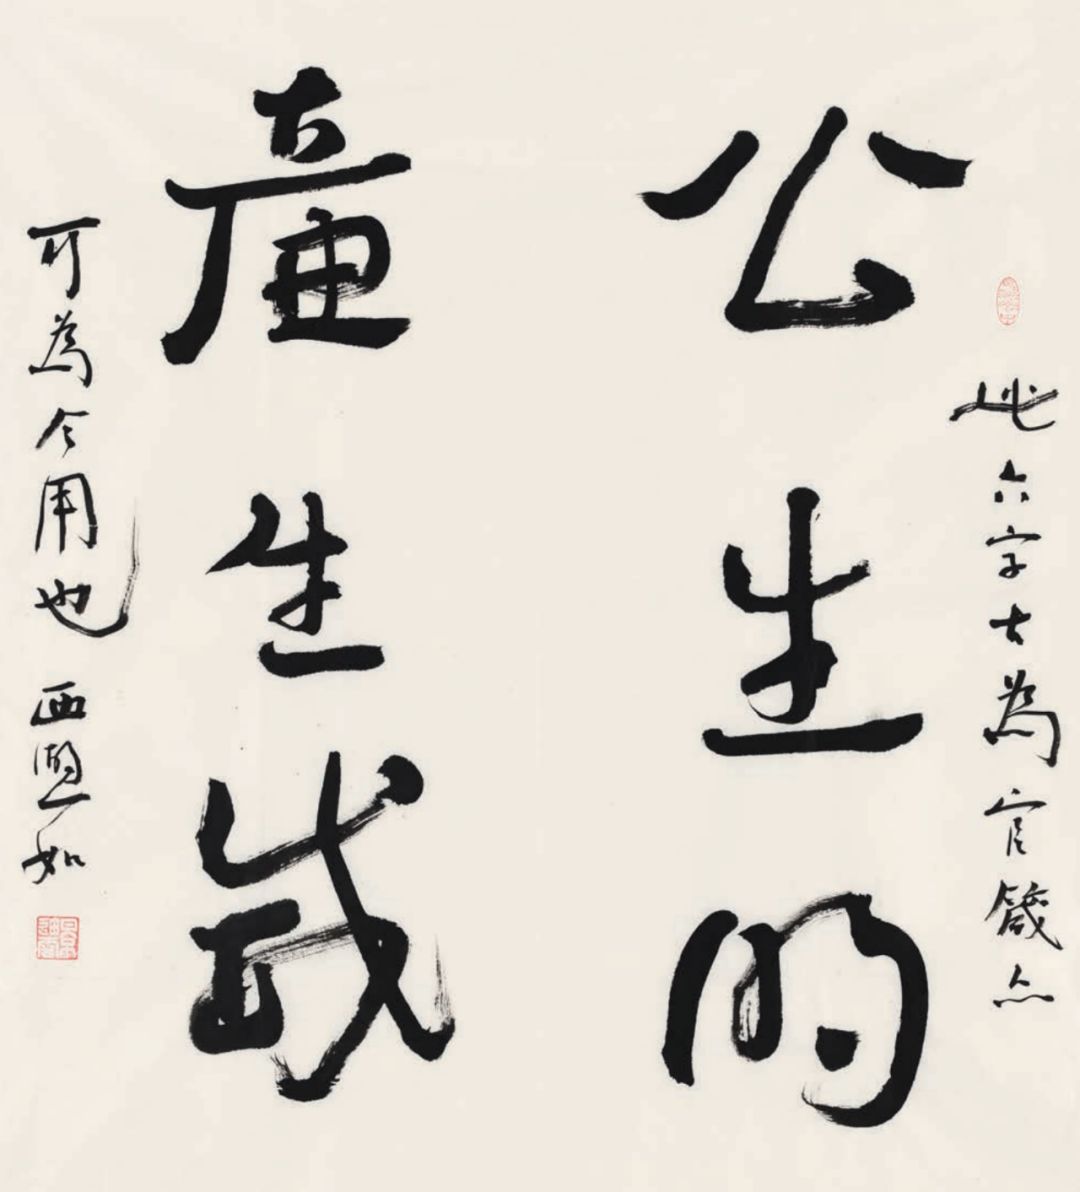 公生明
廉生威
此六字古為官箴亦
可為今用也 西湖一如